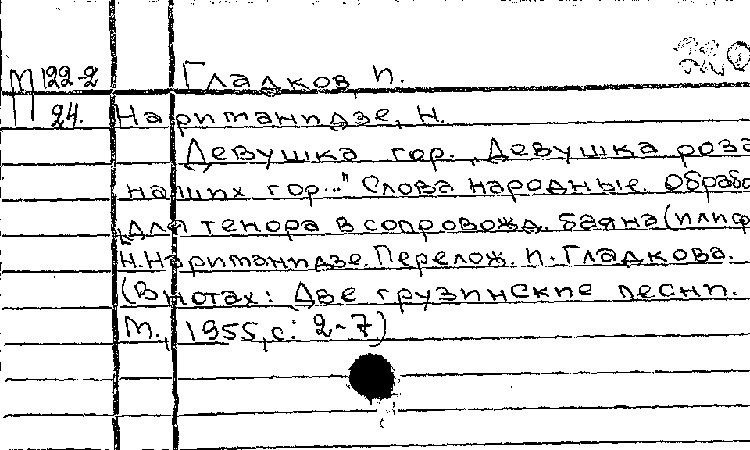 М 122-2 Гладков, П.
24. Нариманидзе, Н.
Девушка гор. „Девушка роза
наших гор..." Слова народные. Обрабо
для тенора в сопровожд. баяна (или ф
Н. Нариманидзе. Перелож. П. Гладкова.
(В нотах: Две грузинские песни.
М., 1955, с. 2-7)